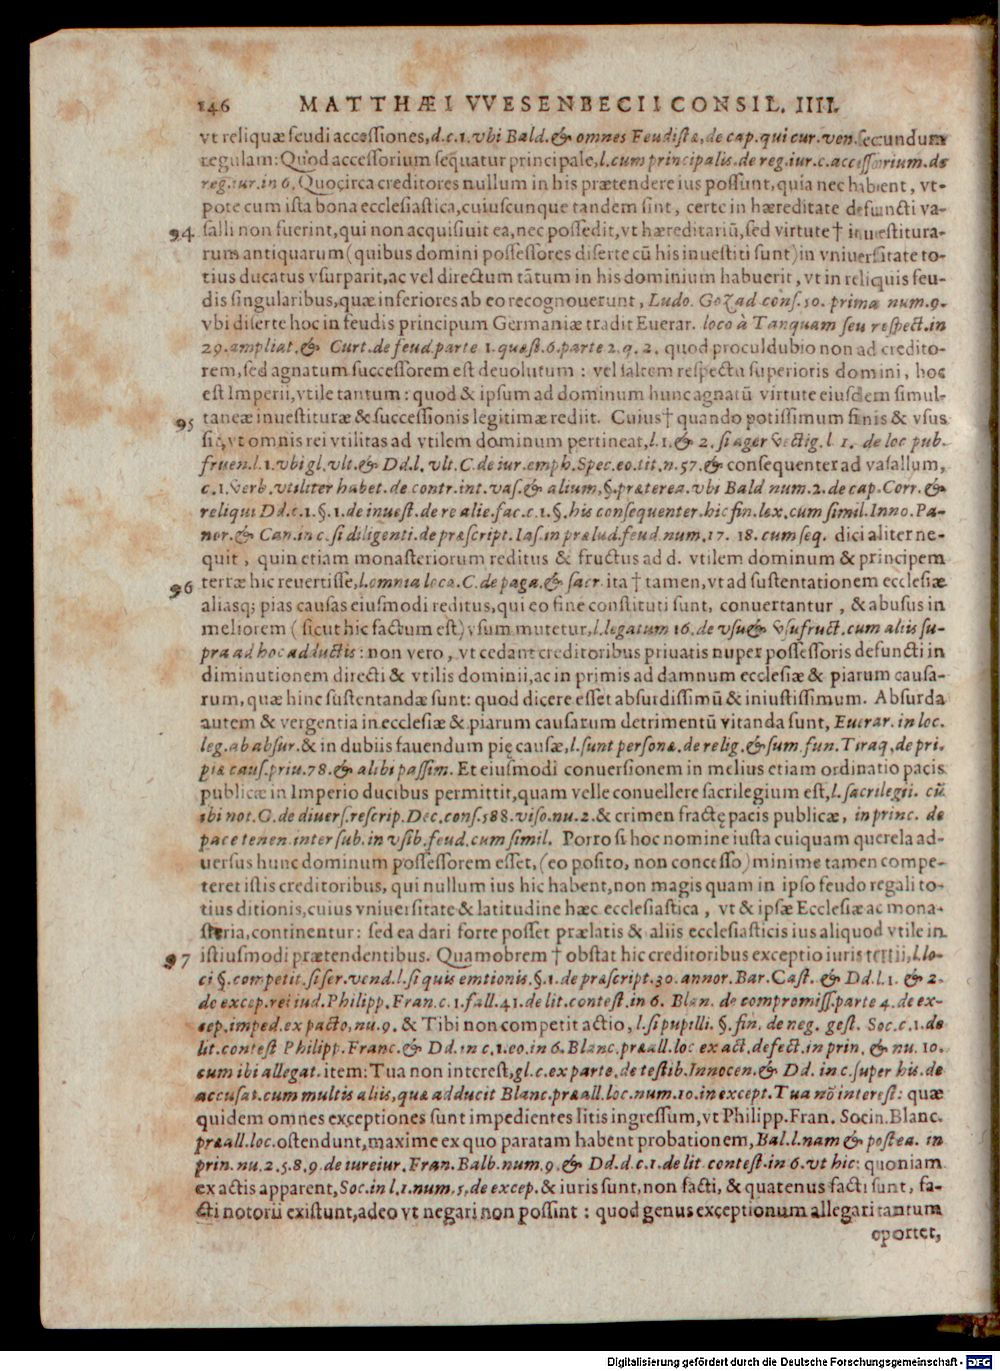 146 MATTHÆI VVESENBECII CONSIL. IIII.
vt reliquæ feudi accessiones, d.c.1. vbi Bald. & omnes Feudistæ, de cap. qui cur. ven. secundum
regulam: Quod accessorium sequatur principale, l. cum principalis. de reg. iur. c. accessorium. de
reg. iur. in 6. Quocirca creditores nullum in his prætendere ius possunt, quia nec habent, vt-
pote cum ista bona ecclesiastica, cuiuscunque tandem sint, certe in hæreditate defuncti va-
94 salli non fuerint, qui non acquisiuit ea, nec possedit, vt hæreditariū, sed virtute † inuestitura-
rum antiquarum (quibus domini possessores diserte cū his inuestiti sunt) in vniuersitate to-
tius ducatus vsurparit, ac vel directum tātum in his dominium habuerit, vt in reliquis feu-
dis singularibus, quæ inferiores ab eo recognouerunt, Ludo. Gozad cons. 10. prima num. 9.
vbi diserte hoc in feudis principum Germaniæ tradit Euerar. loco à Tanquam seu respect. in
29. ampliat. & Curt. de feud. parte 1. quæst. 6. parte 2. q. 2. quod proculdubio non ad credito-
rem, sed agnatum successorem est deuolutum: vel saltem respectu superioris domini, hoc
est Imperii, vtile tantum: quod & ipsum ad dominum hunc agnatū virtute eiusdem simul-
95 taneæ inuestituræ & successionis legitimæ rediit. Cuius † quando potissimum finis & vsus
sit, vt omnis rei vtilitas ad vtilem dominum pertineat, l. 1. & 2. si ager vectig. l. 1. de loc pub.
fruen. l. 1. vbi gl. vlt. & Dd. l. vlt. C. de iur. emph. Spec. eo. tit. n. 57. & consequenter ad vasallum,
c. 1. verb. vtiliter habet. de contr. int. vas. & alium, §. præterea. vbi Bald num. 2. de cap. Corr. &
reliqui Dd. c. 1. §. 1. de inuest. de re alie. fac. c. 1. §. his consequenter. hic fin. lex. cum simil. Inno. Pa-
nor. & Can. in c. si diligenti. de præscript. Ias. in prælud. feud. num. 17. 18. cum seq. dici aliter ne-
quit, quin etiam monasteriorum reditus & fructus ad d. vtilem dominum & principem
96 terræ hic reuertisse, l. omnia loca. C. de paga. & sacr. ita † tamen, vt ad sustentationem ecclesiæ
aliasq; pias causas eiusmodi reditus, qui eo fine constituti sunt, conuertantur, & abusus in
meliorem (sicut hic factum est) vsum mutetur, l. legatum 16. de vsu & vsufruct. cum aliis su-
pra ad hoc adductis: non vero, vt cedant creditoribus priuatis nuper possessoris defuncti in
diminutionem directi & vtilis dominii, ac in primis ad damnum ecclesiæ & piarum causa-
rum, quæ hinc sustentandæ sunt: quod dicere esset absurdissimū & iniustissimum. Absurda
autem & vergentia in ecclesiæ & piarum causarum detrimentū vitanda sunt, Euerar. in loc.
leg. ab absur. & in dubiis fauendum pię causæ, l. sunt personæ. de relig. & sum. fun. Tiraq. de pri.
piæ caus. priu. 78. & alibi passim. Et eiusmodi conuersionem in melius etiam ordinatio pacis
publicæ in Imperio ducibus permittit, quam velle conuellere sacrilegium est, l. sacrilegii. cū
ibi not. C. de diuers. rescrip. Dec. cons. 588. viso. nu. 2. & crimen fractę pacis publicæ, in princ. de
pace tenen. inter sub. in vsib. feud. cum simil. Porro si hoc nomine iusta cuiquam querela ad-
uersus hunc dominum possessorem esset, (eo posito, non concesso) minime tamen compe-
teret istis creditoribus, qui nullum ius hic habent, non magis quam in ipso feudo regali to-
tius ditionis, cuius vniuersitate & latitudine hæc ecclesiastica, vt & ipsæ Ecclesiæ ac mona-
steria, continentur: sed ea dari forte posset prælatis & aliis ecclesiasticis ius aliquod vtile in
97 istiusmodi prætendentibus. Quamobrem † obstat hic creditoribus exceptio iuris tertii, l. lo-
ci §. competit. si ser. vend. l. si quis emtionis. §. 1. de præscript. 30. annor. Bar. Cast. & Dd. l. 1. & 2.
de excep. rei iud. Philipp. Fran. c. 1. fall. 41. de lit. contest. in 6. Blan. de compromiss. parte 4. de ex-
cep. imped. ex pacto, nu. 9. & Tibi non competit actio, l. si pupilli. §. fin. de neg. gest. Soc. c. 1. de
lit. contest Philipp. Franc. & Dd. in c. 1. eo. in 6. Blanc. præall. loc ex act. defect. in prin. & nu. 10.
cum ibi allegat. item: Tua non interest, gl. c. ex parte, de testib. Innocen. & Dd. in c. super his. de
accusat. cum multis aliis, quæ adducit Blanc. præall. loc. num. 10. in except. Tua nō interest: quæ
quidem omnes exceptiones sunt impedientes litis ingressum, vt Philipp. Fran. Socin. Blanc.
præall. loc. ostendunt, maxime ex quo paratam habent probationem, Bal. l. nam & postea. in
prin. nu. 2. 5. 8. 9. de iureiur. Fran. Balb. num. 9. & Dd. d. c. 1. de lit. contest. in 6. vt hic: quoniam
ex actis apparent, Soc. in l. 1. num. 5. de excep. & iuris sunt, non facti, & quatenus facti sunt, fa-
cti notorii existunt, adeo vt negari non possint: quod genus exceptionum allegari tantum
oportet,
Digitalisierung gefördert durch die Deutsche Forschungsgemeinschaft - DFG